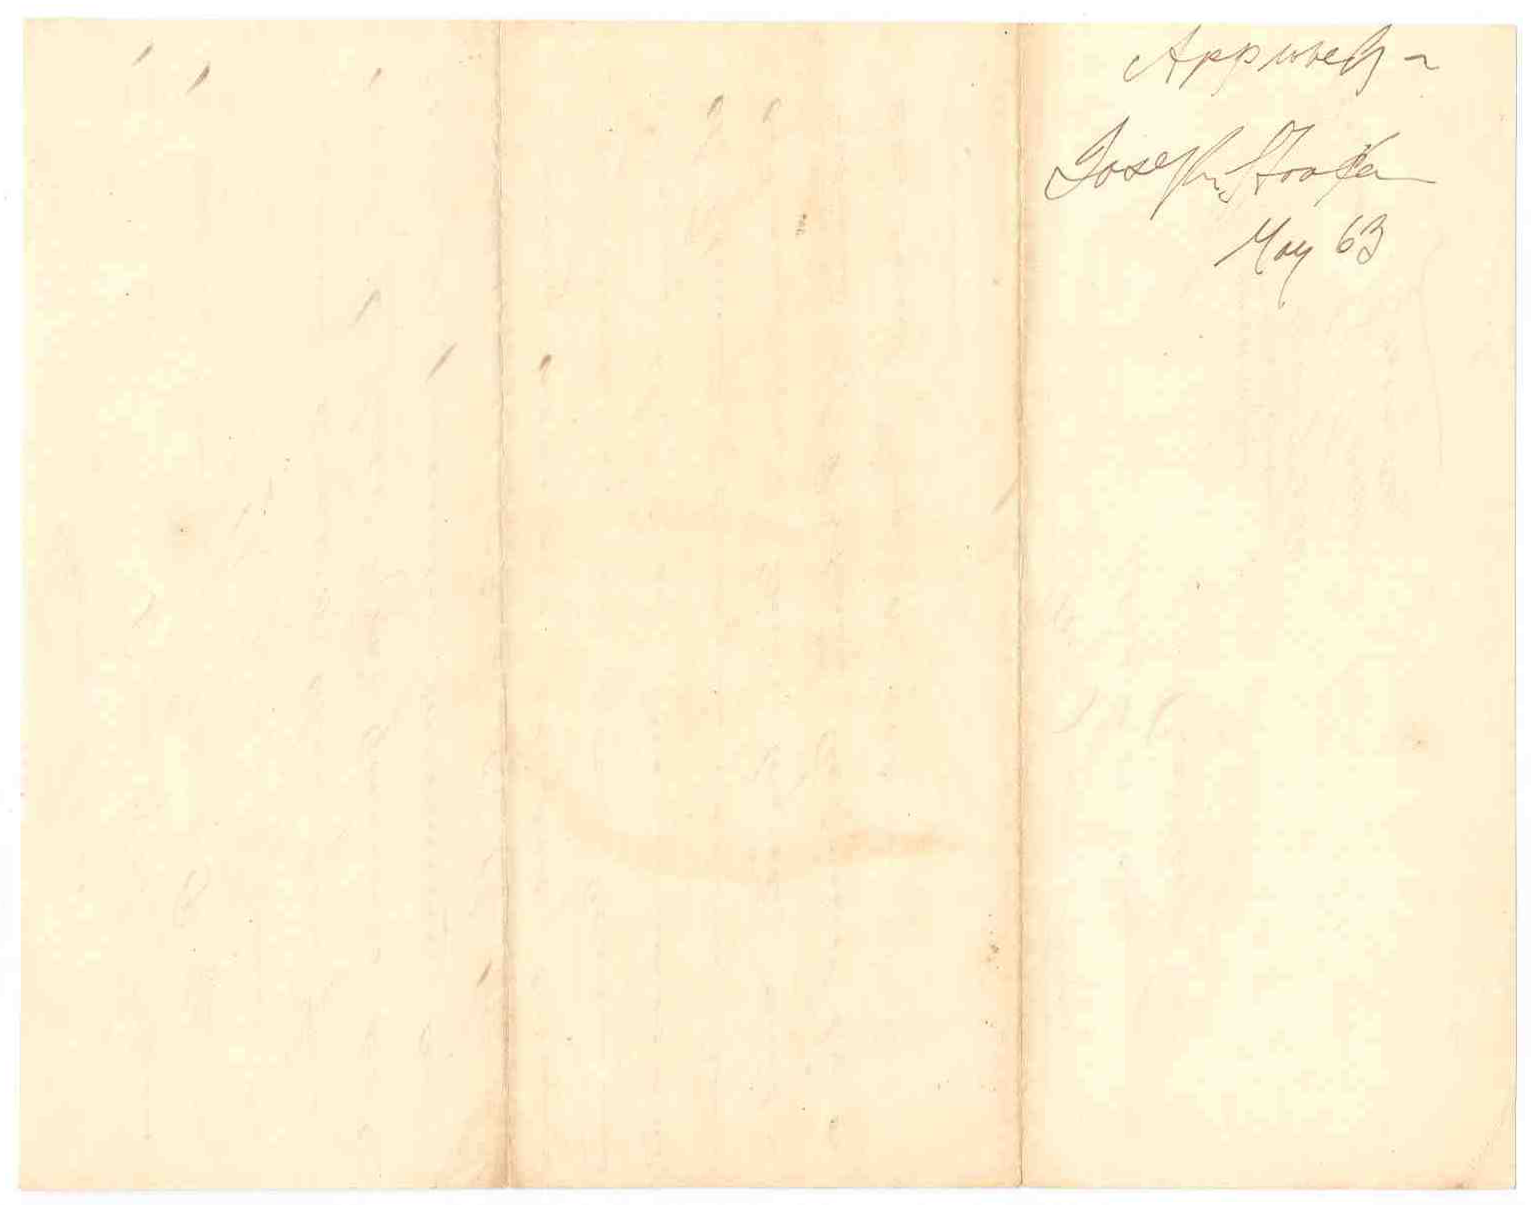 Approved -
Joseph Hooker
May 63